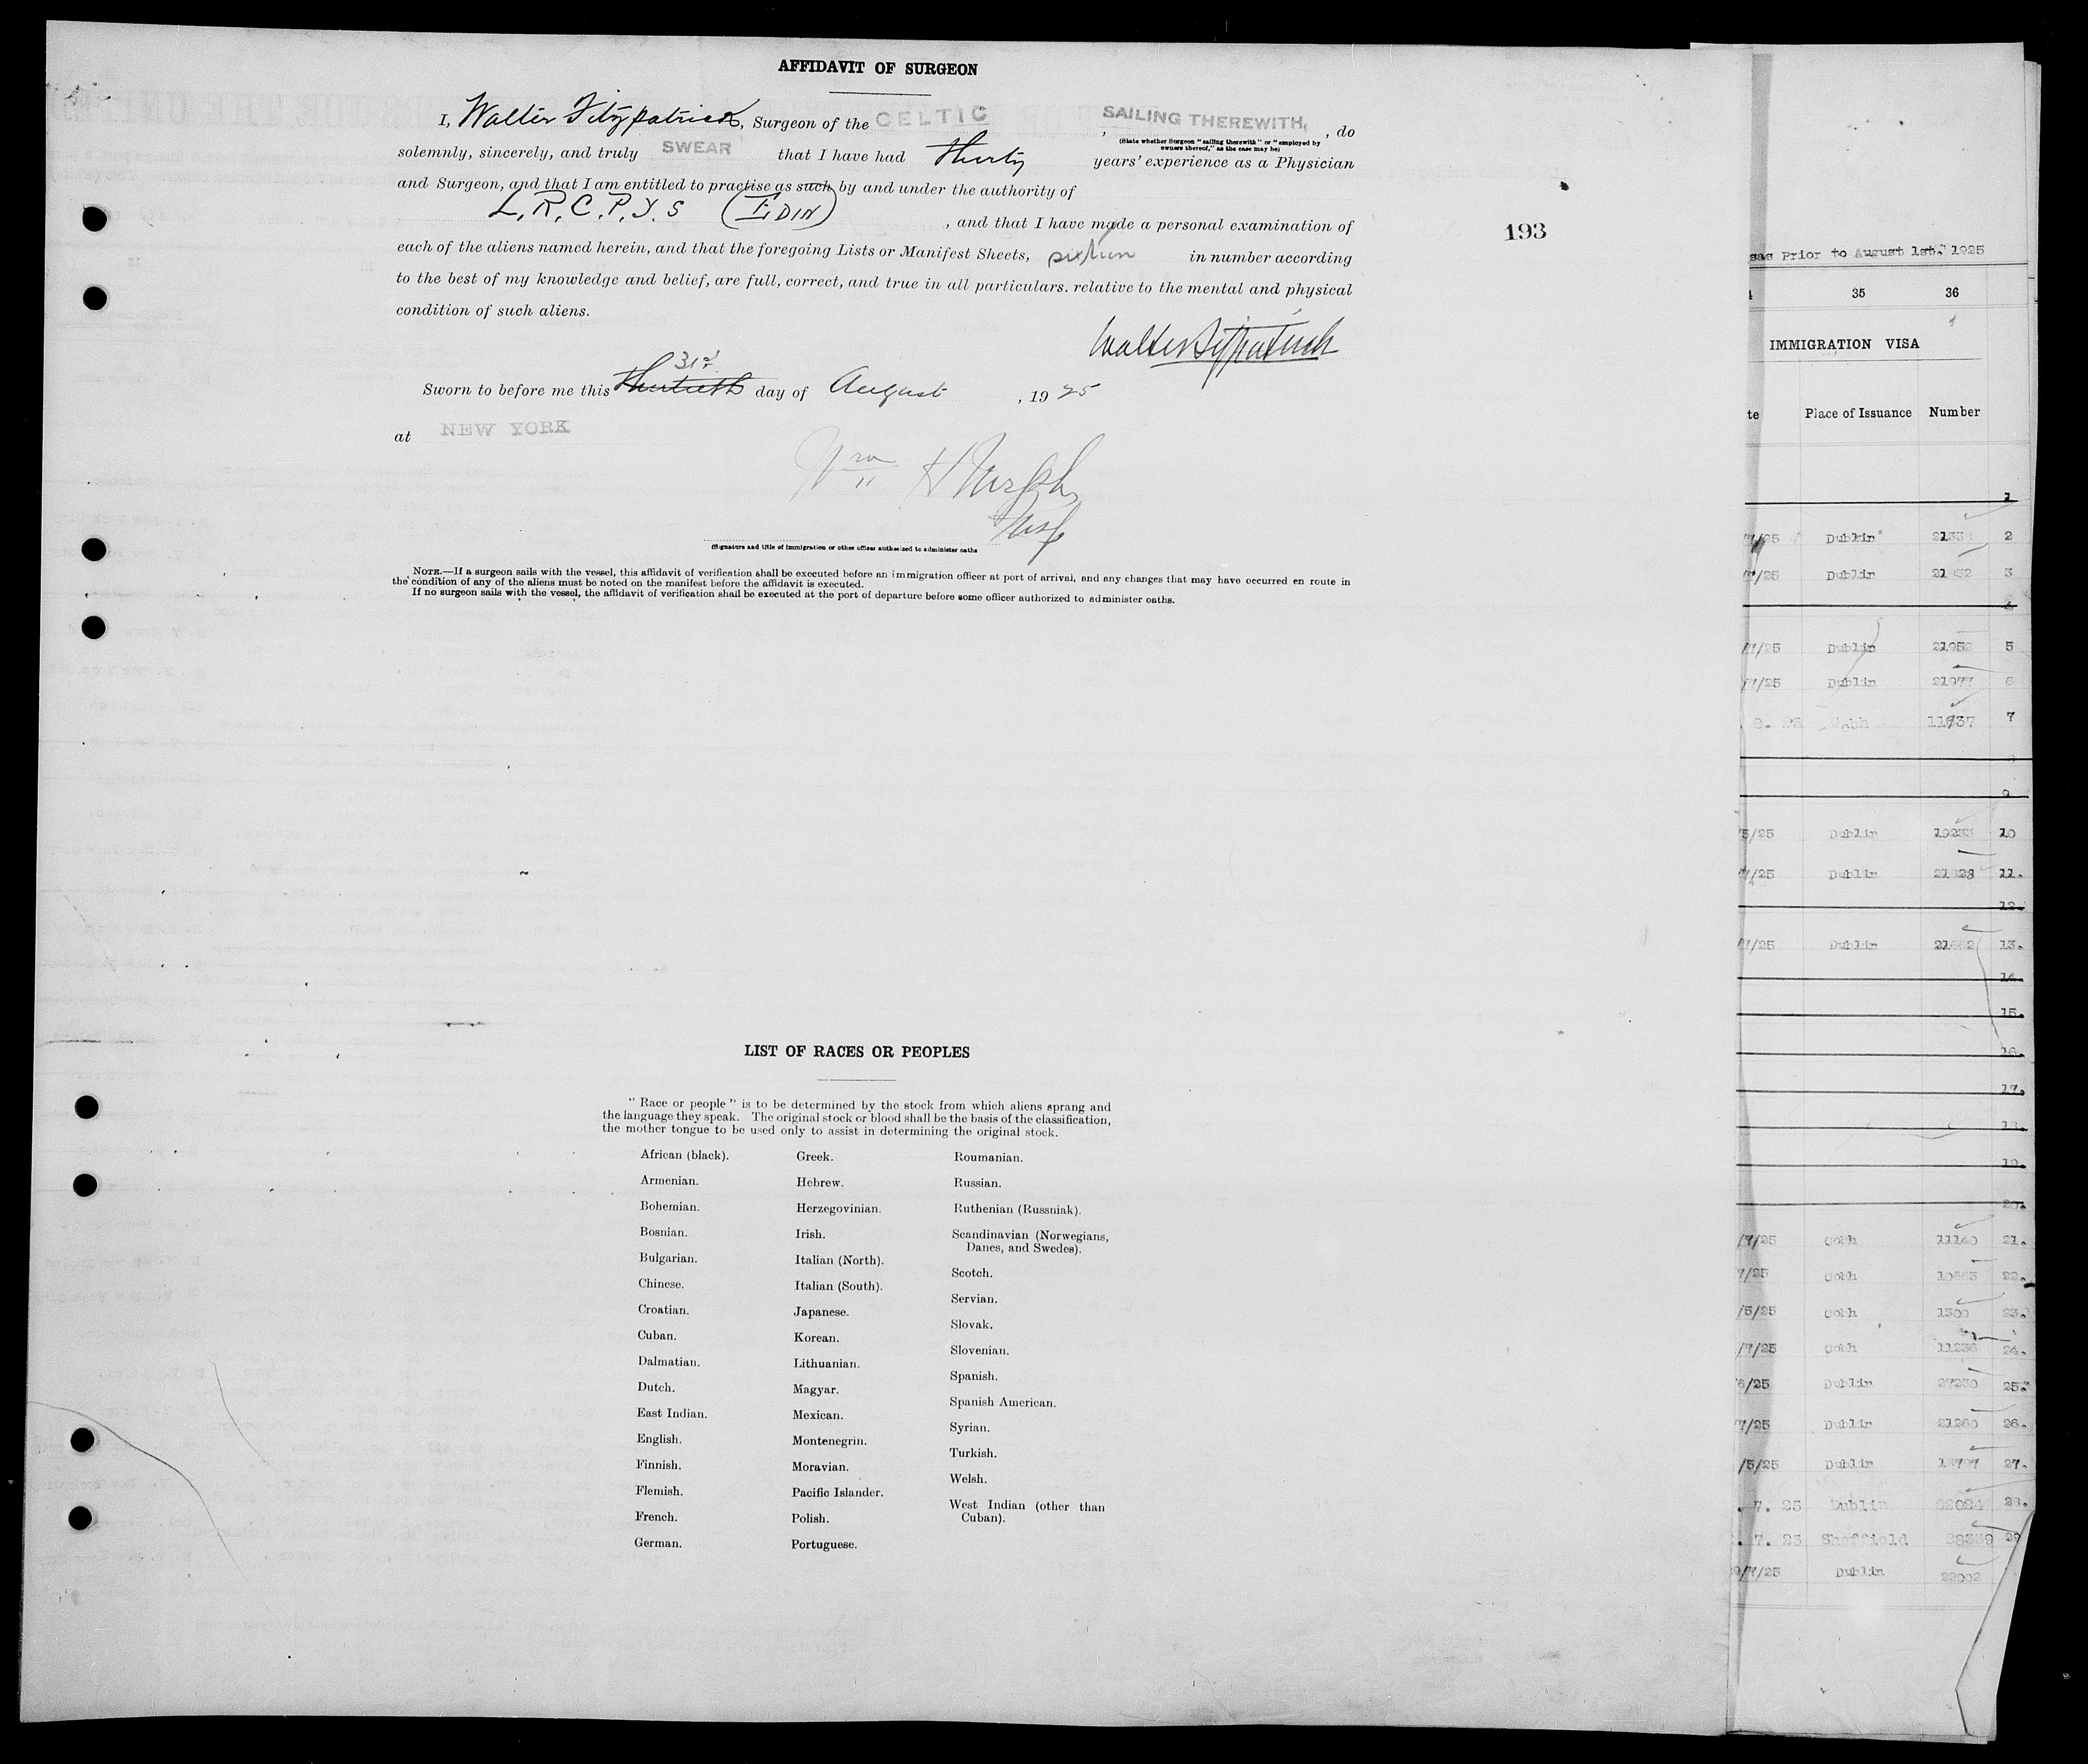 AFFIDAVIT OF SURGEON
I, Walter Fitzpatrick, Surgeon of the CELTIC, SAILING THEREWITH, do
(State whether Surgeon "sailing therewith" or "employed by
owners thereof," as the case may be)
solemnly, sincerely, and truly SWEAR that I have had Thirty years' experience as a Physician
and Surgeon, and that I am entitled to practise as such by and under the authority of
L.R.C.P.Y.S (EDIN), and that I have made a personal examination of
193
each of the aliens named herein, and that the foregoing Lists or Manifest Sheets, sixteen in number according
to the best of my knowledge and belief, are full, correct, and true in all particulars. relative to the mental and physical
condition of such aliens.
Walter Fitzpatrick
31st
Sworn to before me this Thirtieth day of August, 1925
at NEW YORK
Wm H Murphy
(Signature and title of immigration or other officer authorized to administer oaths
NOTE.—If a surgeon sails with the vessel, this affidavit of verification shall be executed before an immigration officer at port of arrival, and any changes that may have occurred en route in
the condition of any of the aliens must be noted on the manifest before the affidavit is executed.
If no surgeon sails with the vessel, the affidavit of verification shall be executed at the port of departure before some officer authorized to administer oaths.
LIST OF RACES OR PEOPLES
"Race or people" is to be determined by the stock from which aliens sprang and
the language they speak. The original stock or blood shall be the basis of the classification,
the mother tongue to be used only to assist in determining the original stock.
African (black).
Armenian.
Bohemian.
Bosnian.
Bulgarian.
Chinese.
Croatian.
Cuban.
Dalmatian.
Dutch.
East Indian.
English.
Finnish.
Flemish.
French.
German.
Greek.
Hebrew.
Herzegovinian.
Irish.
Italian (North).
Italian (South).
Japanese.
Korean.
Lithuanian.
Magyar.
Mexican.
Montenegrin.
Moravian.
Pacific Islander.
Polish.
Portuguese.
Roumanian.
Russian.
Ruthenian (Russniak).
Scandinavian (Norwegians,
Danes, and Swedes).
Scotch.
Servian.
Slovak.
Slovenian.
Spanish.
Spanish American.
Syrian.
Turkish.
Welsh.
West Indian (other than
Cuban).
Prior to August 1st. 1925
35 36
IMMIGRATION VISA
Place of Issuance Number
1
/25 Dublin 2
/25 Dublin 3
4
/7/25 Dublin 5
/7/25 Dublin 21977 6
8. 25 Cobh 7
9
/5/25 Dublin 10
/25 Dublin 11.
12.
/7/25 Dublin 13.
14.
15.
16.
17.
18.
19.
20.
/7/25 Cobh 11140 21.
7/25 Cobh 22.
/5/25 Cobh 1300 23.
/7/25 Cobh 11236 24.
6/25 Dublin 27230 25.
7/25 Dublin 21260 26.
/5/25 Dublin 27.
. 7. 25 Dublin 22024 28.
. 7. 25 Sheffield 29
/7/25 Dublin 22002